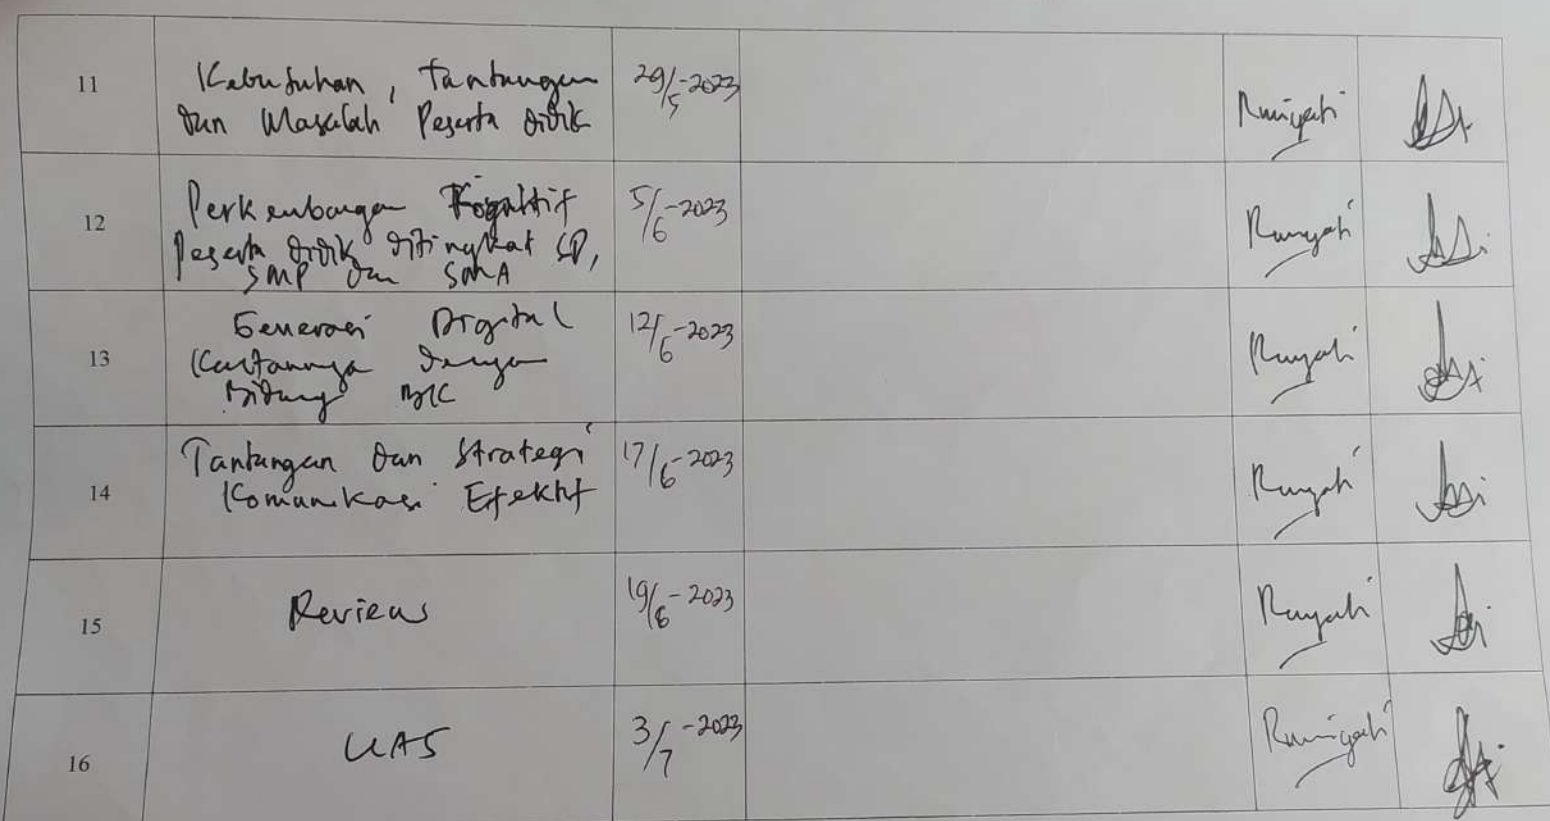 11
Kebutuhan, Tantangan
dan Masalah Peserta didik
29/5-2023
Rumiyati
12
Perkembangan Kognitif
Peserta didik ditingkat SD,
SMP dan SMA
5/6-2023
Rumiyati
13
Generasi Digital
Kaitannya dengan
Bidang BK
12/6-2023
Rumiyati
14
Tantangan dan Strategi
Komunikasi Efektif
17/6-2023
Rumiyati
15
Review
19/6-2023
Rumiyati
16
UAS
3/7-2023
Rumiyati